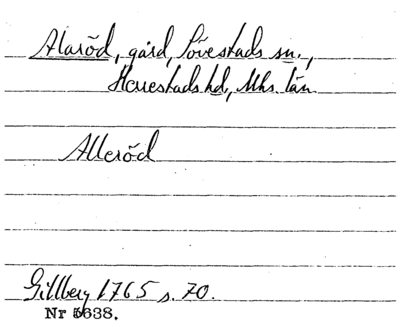 Alaröd, gård, Sövestads sn.,
Herrestads hd., Mhs. län
Alleröd
Gillberg 1765 s. 70.
Nr 5638.